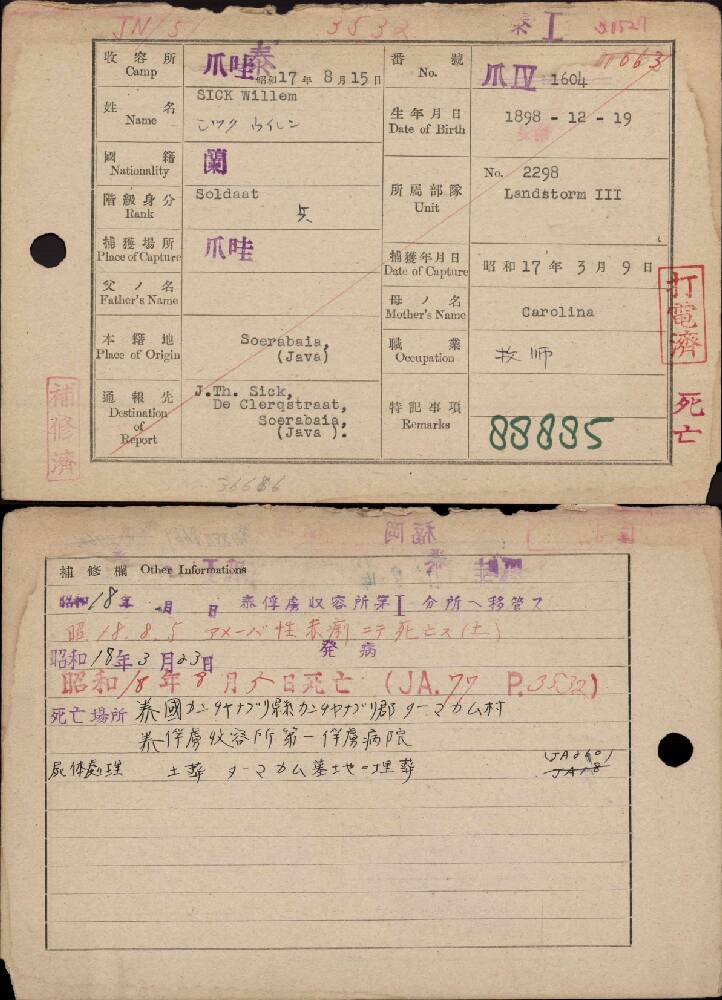 JN/51 3532 泰 I
收容所 Camp 爪哇 泰 昭和17年 8月15日 番號 No. 爪IV 1604
姓名 Name SICK Willem 生年月日 Date of Birth 1898 - 12 - 19
シツク ウイレン
國籍 Nationality 蘭 所屬部隊 Unit No. 2298
階級身分 Rank Soldaat 兵 Landstorm III
捕獲場所 Place of Capture 爪哇 捕獲年月日 Date of Capture 昭和17年 3月 9日
父ノ名 Father's Name 母ノ名 Mother's Name Carolina
本籍地 Place of Origin Soerabaia, (Java) 職業 Occupation 牧师
通報先 Destination of Report J.Th. Sick, De Clerqstraat, Soerabaia, (Java). 特記事項 Remarks 88885
打電濟
死亡
補修濟
36686
福岡
補修欄 Other Informations
昭和18年 月 日 泰俘虜収容所第I分所ヘ移管ス
昭18.8.5 アメーバ性赤痢ニテ死亡ス(土)
昭和18年3月23日 発病
昭和18年8月5日死亡 (JA.77 P.3532)
死亡場所 泰國カンチヤナブリ県カンチヤナブリ郡ターマカム村
泰俘虜收容所第一俘虜病院
屍体処理 土葬 ターマカム墓地ニ埋葬